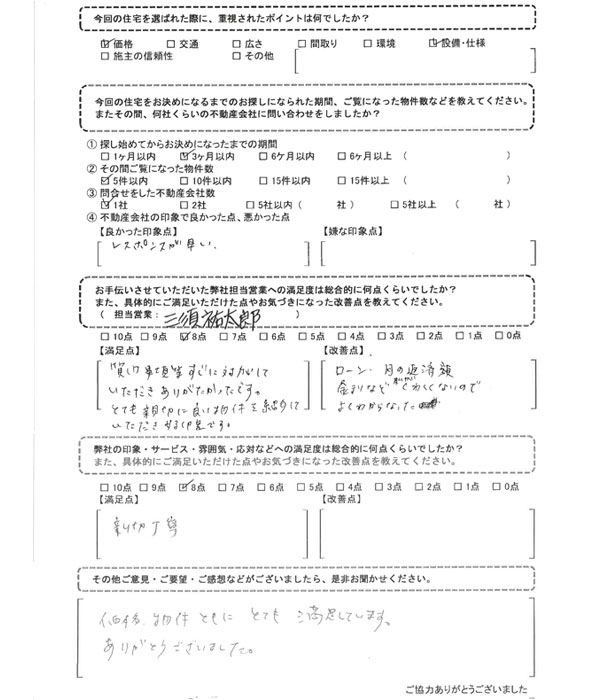 今回の住宅を選ばれた際に、重視されたポイントは何でしたか?
☑価格 □交通 □広さ □間取り □環境 ☑設備・仕様
□施主の信頼性 □その他
今回の住宅をお決めになるまでのお探しになられた期間、ご覧になった物件数などを教えてください。
またその間、何社くらいの不動産会社に問い合わせをしましたか?
① 探し始めてからお決めになったまでの期間
□1ヶ月以内 ☑3ヶ月以内 □6ケ月以内 □6ヶ月以上 ( )
② その間ご覧になった物件数
☑5件以内 □10件以内 □15件以内 □15件以上 ( )
③ 問合せをした不動産会社数
☑1社 □2社 □5社以内( 社) □5社以上 ( 社)
④ 不動産会社の印象で良かった点、悪かった点
【良かった印象点】 【嫌な印象点】
レスポンスが早い、
お手伝いさせていただいた弊社担当営業への満足度は総合的に何点くらいでしたか?
また、具体的にご満足いただけた点やお気づきになった改善点を教えてください。
( 担当営業: 三須祐太郎 )
□10点 □9点 ☑8点 □7点 □6点 □5点 □4点 □3点 □2点 □1点 □0点
【満足点】 【改善点】
質問事項等すぐに対応して
いただきありがたかったです。
とても親切に良い物件を紹介して
いただき
ローン・月の返済額
金利など くわしくないので
よくわからなった
弊社の印象・サービス・雰囲気・応対などへの満足度は総合的に何点くらいでしたか?
また、具体的にご満足いただけた点やお気づきになった改善点を教えてください。
□10点 □9点 ☑8点 □7点 □6点 □5点 □4点 □3点 □2点 □1点 □0点
【満足点】 【改善点】
親切丁寧
その他ご意見・ご要望・ご感想などがございましたら、是非お聞かせください。
価格、物件ともに とても 満足しています。
ありがとうございました。
ご協力ありがとうございました